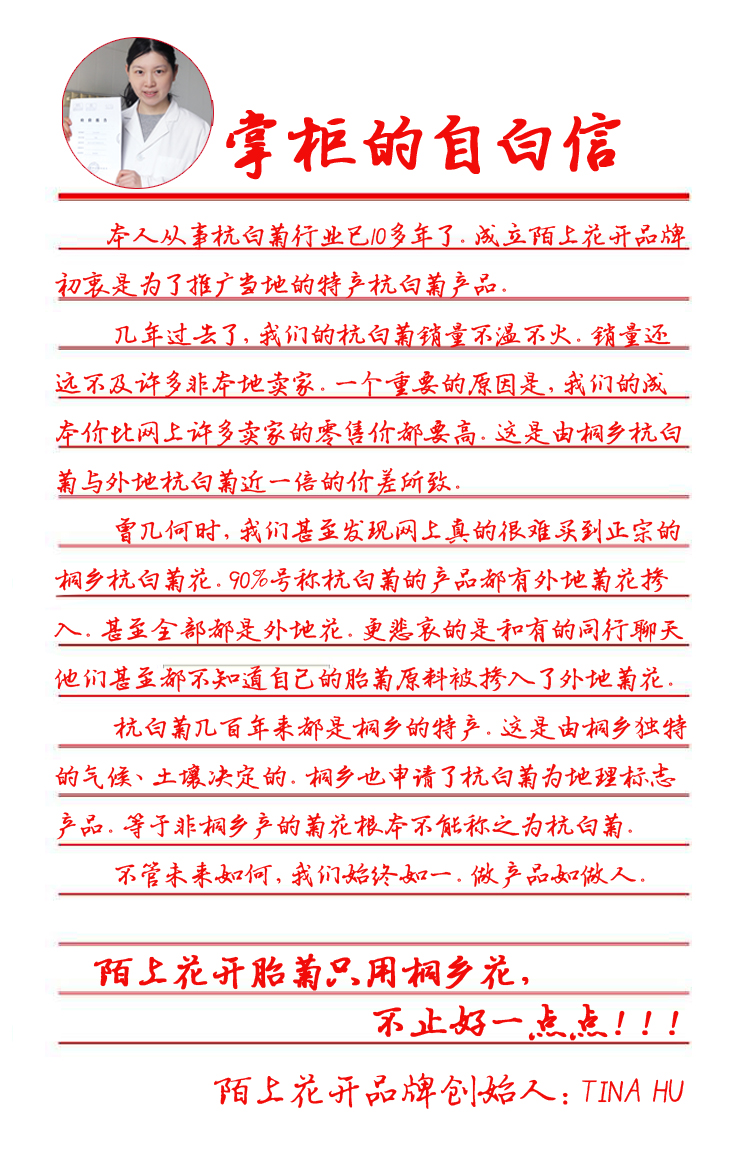 掌柜的自白信
本人从事杭白菊行业已10多年了。成立陌上花开品牌
初衷是为了推广当地的特产杭白菊产品。
几年过去了，我们的杭白菊销量不温不火。销量还
远不及许多非本地卖家。一个重要的原因是，我们的成
本价比网上许多卖家的零售价都要高。这是由桐乡杭白
菊与外地杭白菊近一倍的价差所致。
曾几何时，我们甚至发现网上真的很难买到正宗的
桐乡杭白菊花。90%号称杭白菊的产品都有外地菊花掺
入。甚至全部都是外地花。更悲哀的是和有的同行聊天
他们甚至都不知道自己的胎菊原料被掺入了外地菊花。
杭白菊几百年来都是桐乡的特产。这是由桐乡独特
的气候、土壤决定的。桐乡也申请了杭白菊为地理标志
产品。等于非桐乡产的菊花根本不能称之为杭白菊。
不管未来如何，我们始终如一。做产品如做人。
陌上花开胎菊只用桐乡花，
不止好一点点！！！
陌上花开品牌创始人：TINA HU